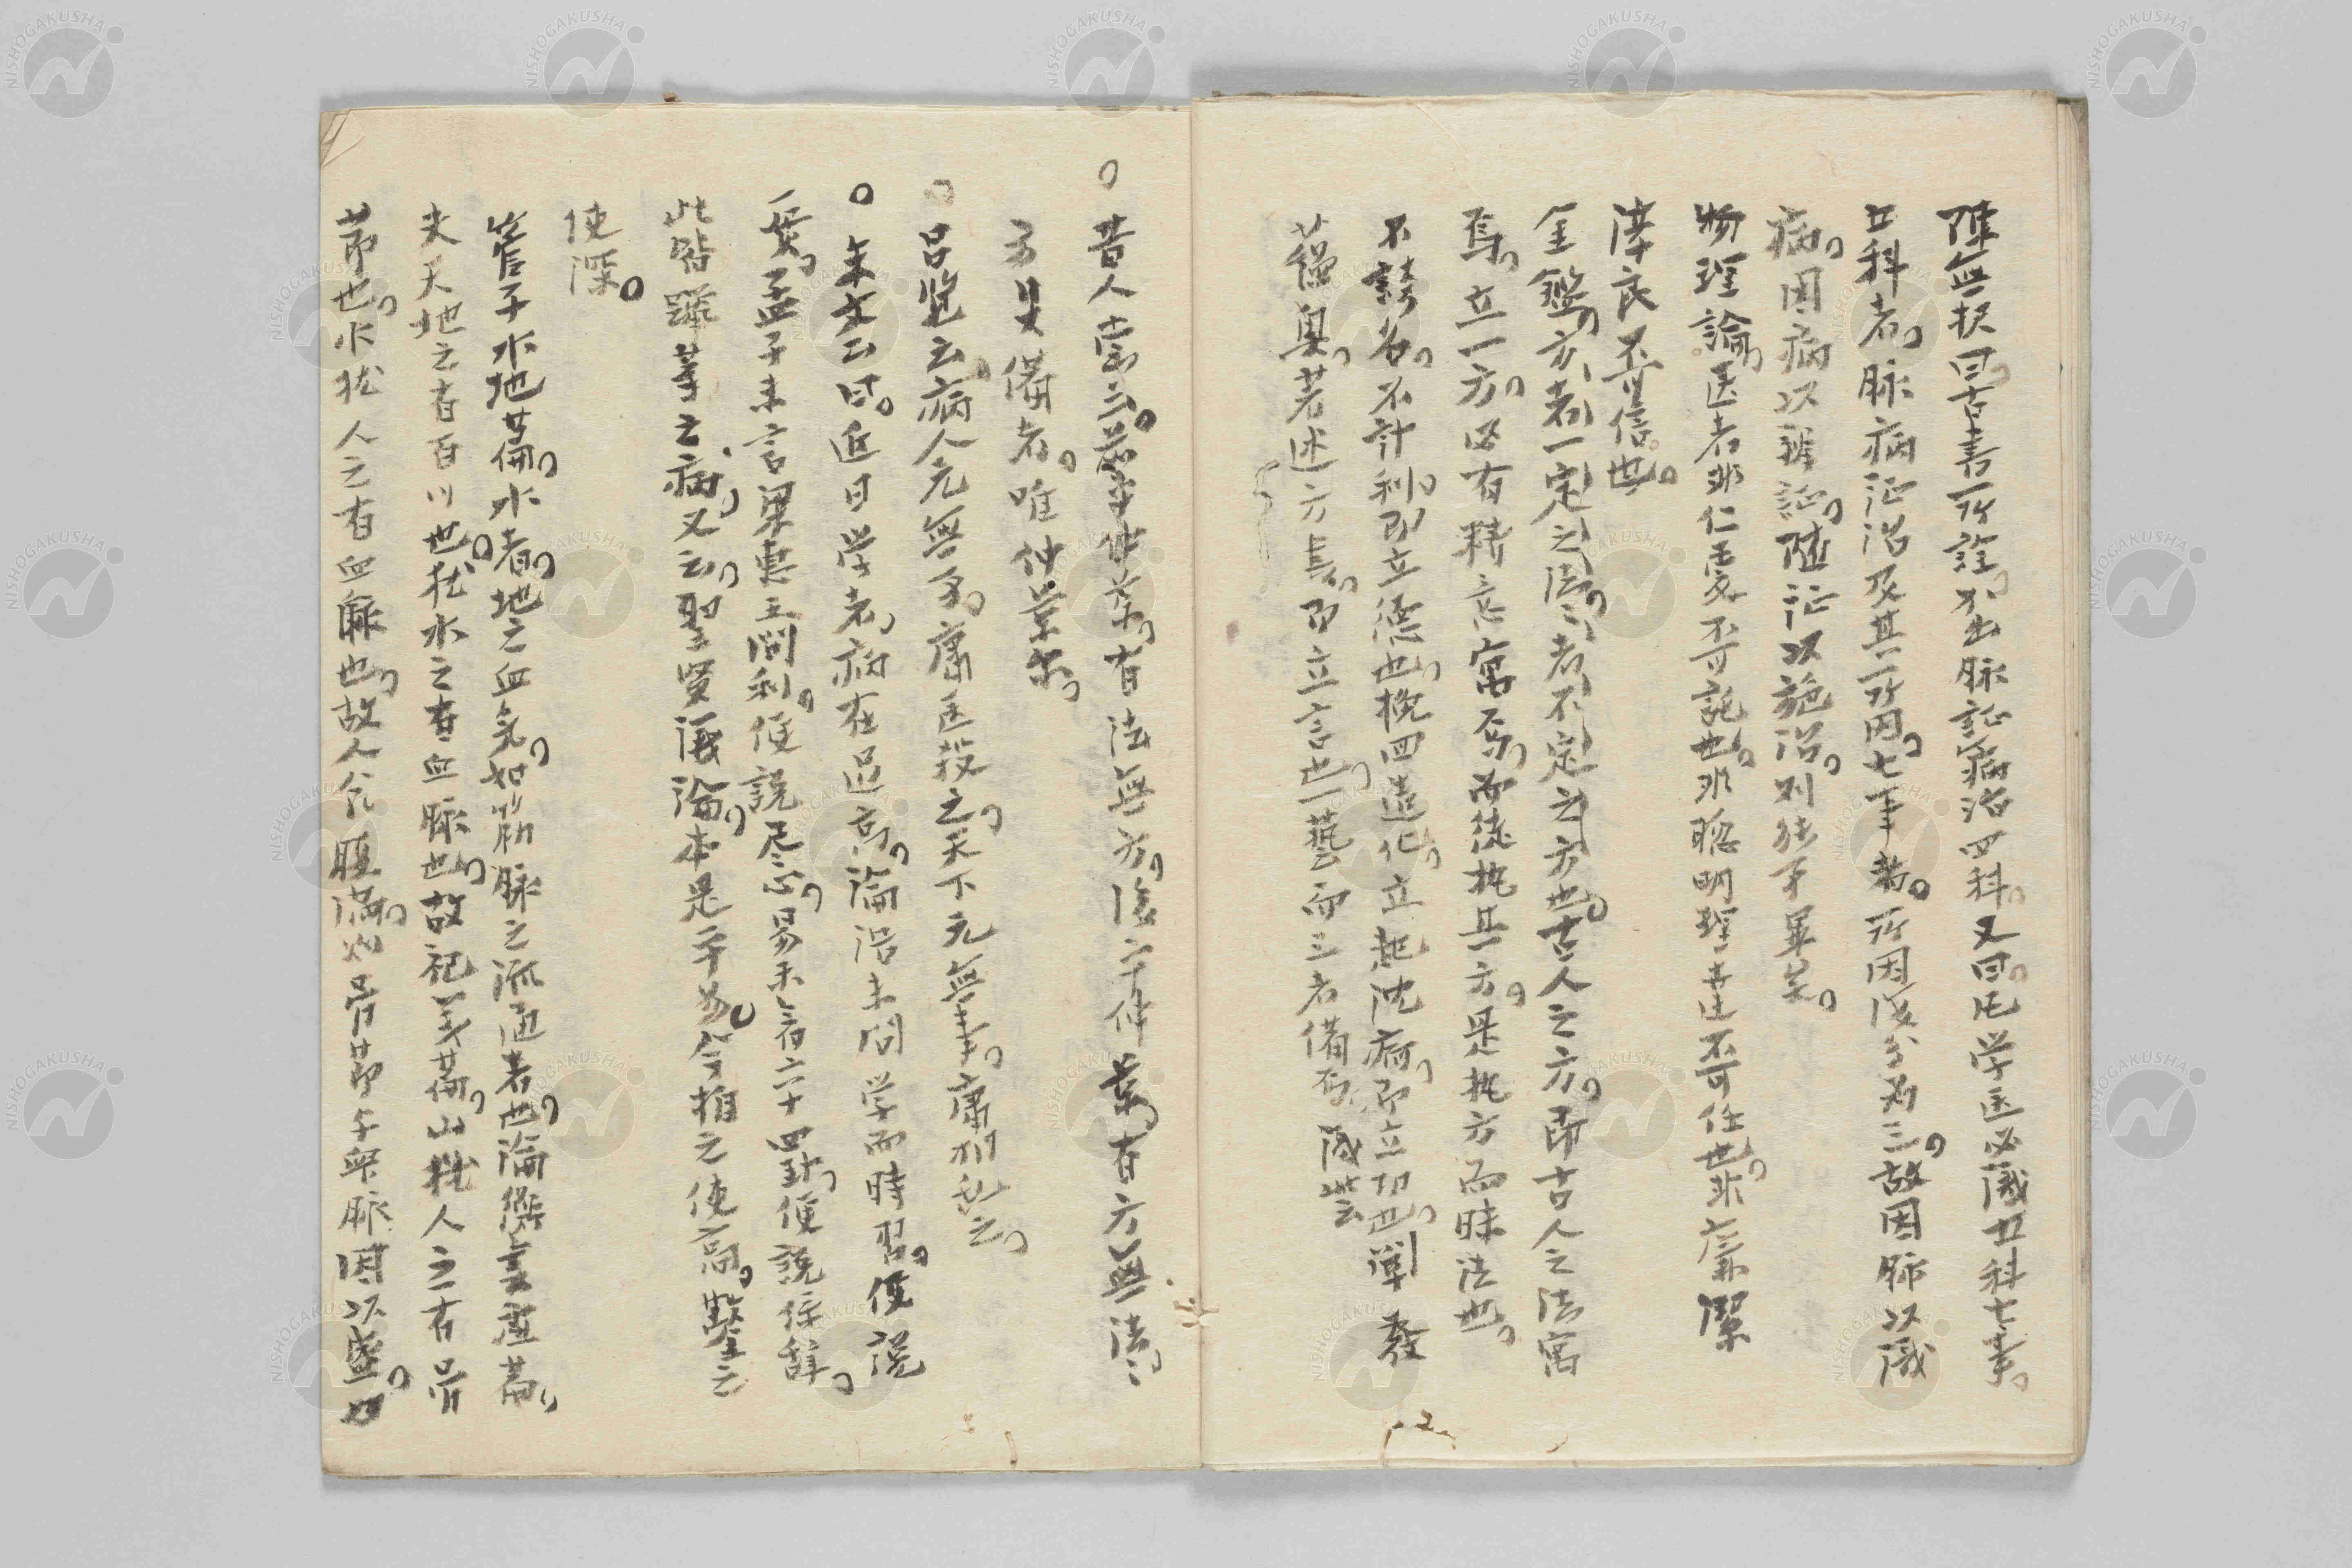 陳無択曰。古書所詮。不出脉証病治四科。又曰。凡学医必識廿科七事。
廿科者。脉病証治及其所因。七事者。所因複分為三。故因脉以識
病。因病以辨証。随証以施治。則能事畢矣。
物理論。医者非仁愛不可託也。非聰明理達不可任也。非廉潔
淳良不可信也。
全鑑。方者一定之法。法者不定之方也。古人之方。即古人之法寓
焉。立一方。必有精意寓焉。而徒執其方。是執方而昧法也。
不誇名。不計利。即立徳也。挽回造化。立起沈痾。即立功也。闡發
蘊奥。著述方書。即立言也。一藝而三者備焉。医云
昔人云。華佗有法無方。孫
方具備者。唯仲景尓。
呂覧云病人元無事。庸医殺之。天下元無事。庸相乱之。
朱文公曰。近日学者。病在過高。論語未問学而時習。便説
一貫。孟子未言梁恵王問利。便説尽心。易未看六十四卦。便説係辞。
此皆躐等之病。又云。聖賢議論。本是平易。今推之使高。鑿之
使深。
管子水地篇。水者。地之血気。如筋脉之流通者也。論衡書虚篇。
夫天地之有百川也。猶水之有血脉也。故祀義篇。山猶人之有骨
節也。水犹人之有血脈也。故人食腹満。則骨節与衆脉因以盛。